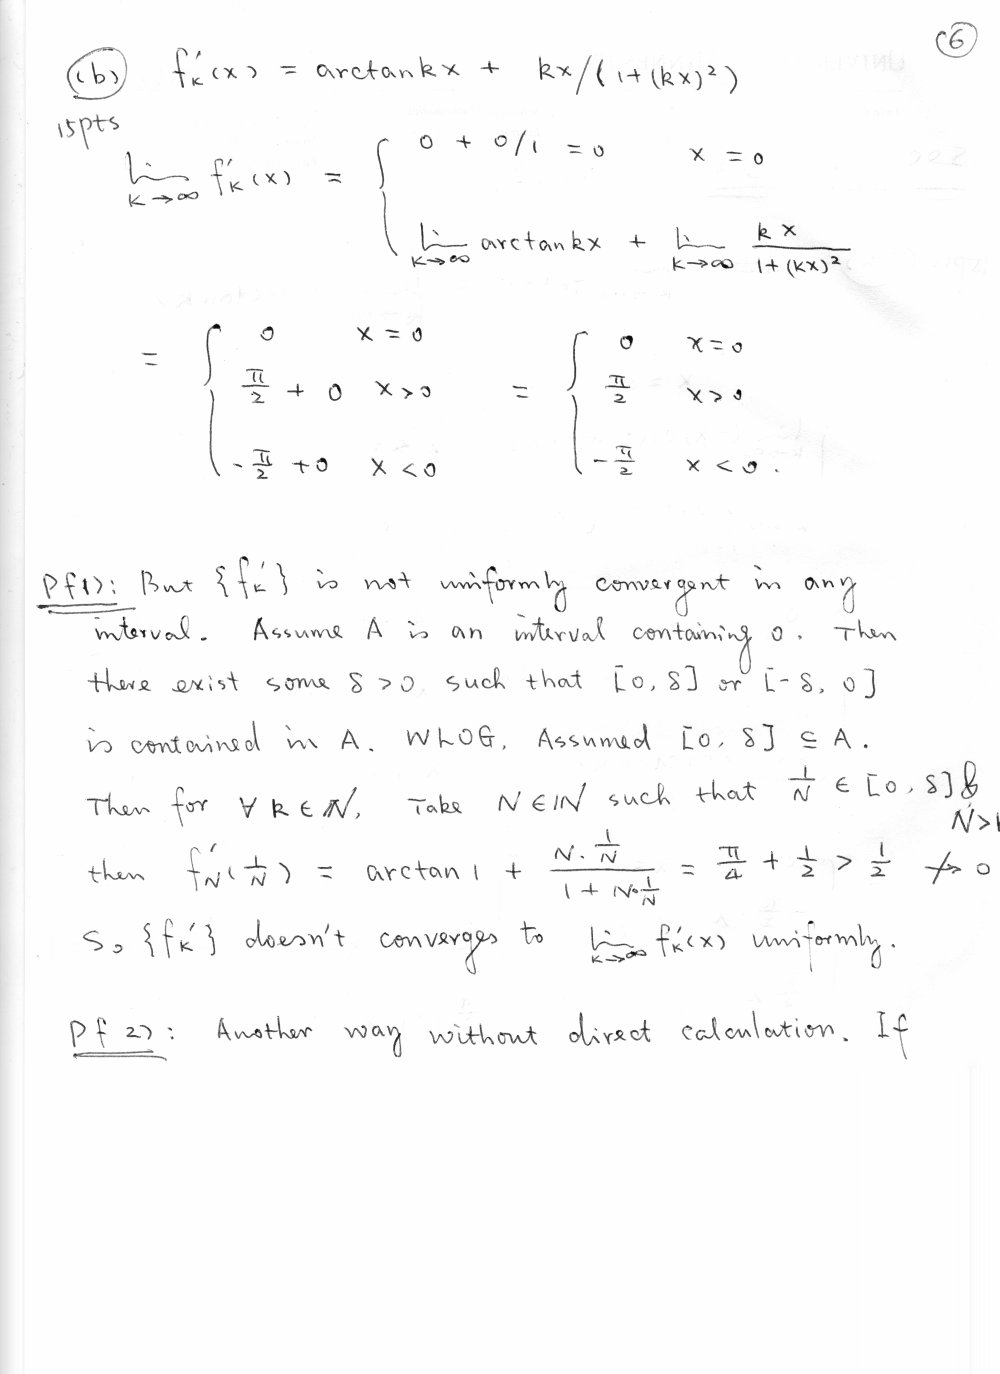 (6)
(b) fₖ'(x) = arctankx + kx/(1+(kx)²)
15pts
lim k→∞ fₖ'(x) = { 0 + 0/1 = 0 x = 0
lim k→∞ arctankx + lim k→∞ kx/(1+(kx)²)
= { 0 x = 0 = { 0 x = 0
π/2 + 0 x > 0 π/2 x > 0
-π/2 + 0 x < 0 -π/2 x < 0 .
Pf 1): But {fₖ'} is not uniformly convergent in any
interval. Assume A is an interval containing 0. Then
there exist some δ > 0 such that [0, δ] or [-δ, 0]
is contained in A. WLOG, Assumed [0, δ] ⊆ A.
Then for ∀ k ∈ N, Take N ∈ IN such that 1/N ∈ [0, δ] &
N > 1
then f_N'(1/N) = arctan 1 + (N·1/N)/(1 + N·1/N) = π/4 + 1/2 > 1/2 ↛ 0
So {fₖ'} doesn't converges to lim k→∞ fₖ'(x) uniformly.
Pf 2): Another way without direct calculation. If